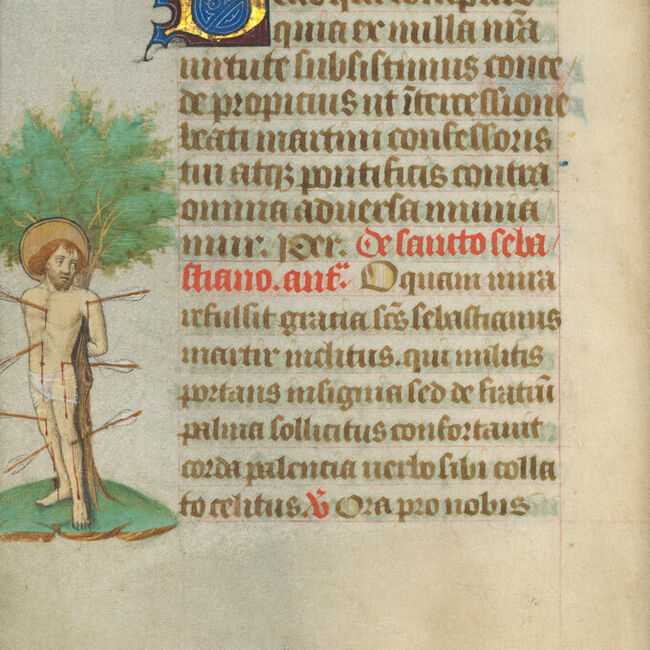 quia ex nulla nr̄a
uirtute subsistimus conce/
de propicius ut ītercessione
beati martini confessoris
tui atqꝫ pontificis contra
omnia aduersa munia
mur. Per. De sancto seba/
stiano. antᵃ. O quam mira
refulsit gracia sc̄s sebastianus
martir inclitus. qui militis
portans insignia sed de fratrū
palma sollicitus confortauit
corda palencia uerbo sibi colla
to celitus. ℣ Ora pro nobis